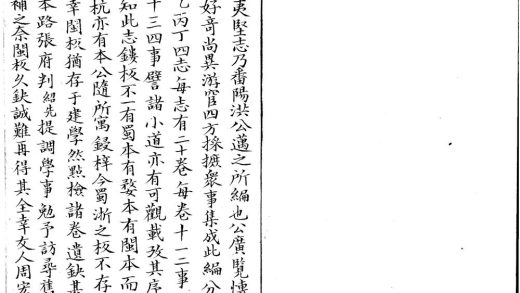 夷堅志乃番陽洪公邁之所編也公廣覽愽
好竒尚異游宦四方採摭衆事集成此編分
乙丙丁四志每志有二十卷每卷十一二事
十三四事譬諸小道亦有可觀載攷其序
知此志鏤板不一有蜀本有婺本有閩本而
杭亦有本公隨所寓鋟梓今蜀浙之板不存
幸閩板猶存于建學然點檢諸卷遺缺甚
本路張府判紹先提調學事勉予訪尋舊
補之奈閩板久缺誠難再得其全幸友人周宏